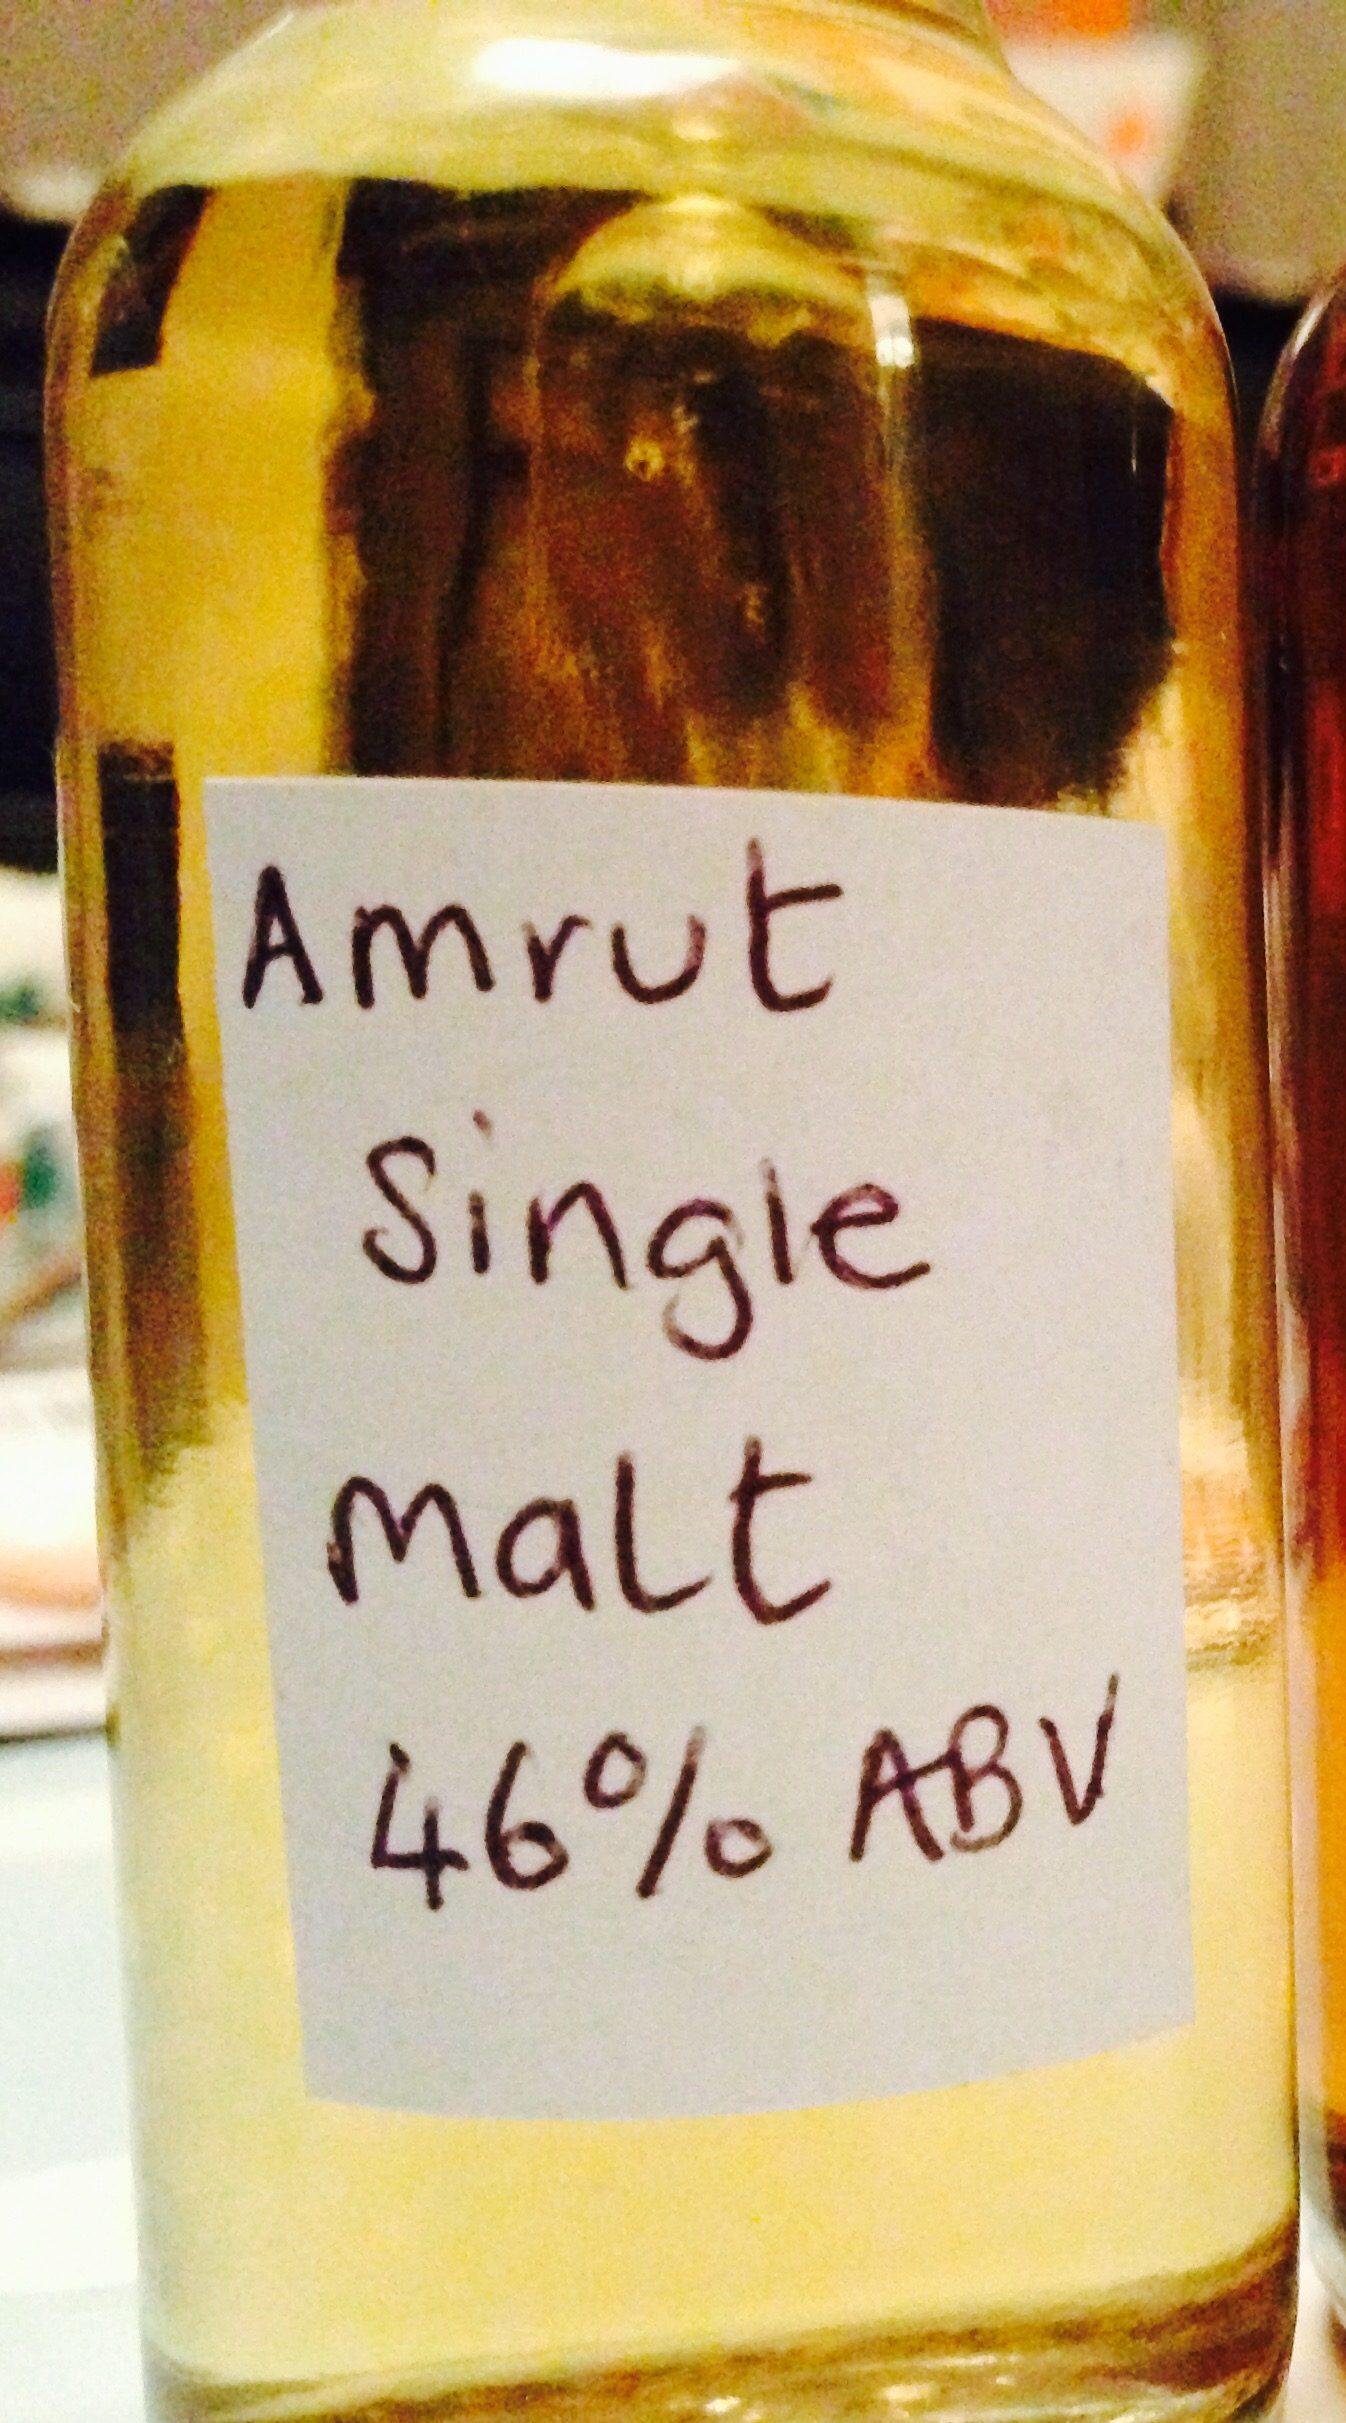 Amrut
Single
Malt
46% ABV